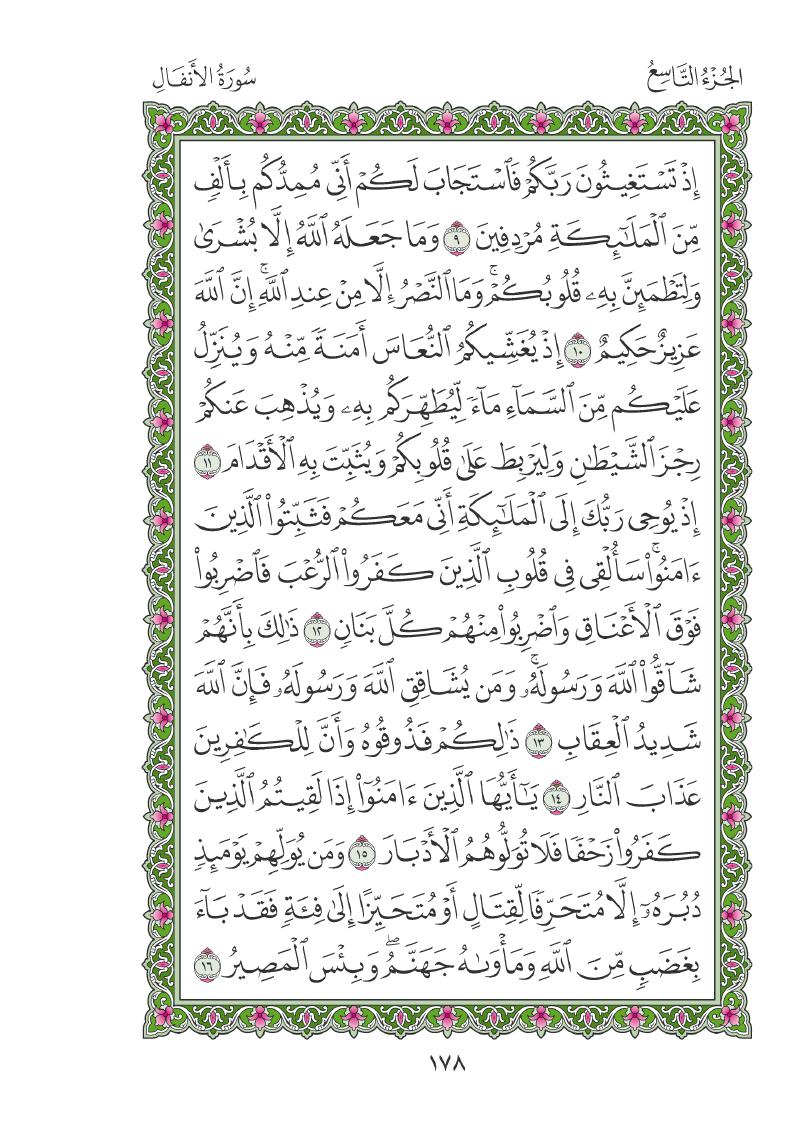 الجُزْءُ التَّاسِعُ
سُورَةُ الأَنفَالِ
إِذْ تَسْتَغِيثُونَ رَبَّكُمْ فَٱسْتَجَابَ لَكُمْ أَنِّى مُمِدُّكُم بِأَلْفٍ
مِّنَ ٱلْمَلَٰٓئِكَةِ مُرْدِفِينَ ٩ وَمَا جَعَلَهُ ٱللَّهُ إِلَّا بُشْرَىٰ
وَلِتَطْمَئِنَّ بِهِۦ قُلُوبُكُمْۚ وَمَا ٱلنَّصْرُ إِلَّا مِنْ عِندِ ٱللَّهِۚ إِنَّ ٱللَّهَ
عَزِيزٌ حَكِيمٌ ١٠ إِذْ يُغَشِّيكُمُ ٱلنُّعَاسَ أَمَنَةً مِّنْهُ وَيُنَزِّلُ
عَلَيْكُم مِّنَ ٱلسَّمَآءِ مَآءً لِّيُطَهِّرَكُم بِهِۦ وَيُذْهِبَ عَنكُمْ
رِجْزَ ٱلشَّيْطَٰنِ وَلِيَرْبِطَ عَلَىٰ قُلُوبِكُمْ وَيُثَبِّتَ بِهِ ٱلْأَقْدَامَ ١١
إِذْ يُوحِى رَبُّكَ إِلَى ٱلْمَلَٰٓئِكَةِ أَنِّى مَعَكُمْ فَثَبِّتُوا۟ ٱلَّذِينَ
ءَامَنُوا۟ۚ سَأُلْقِى فِى قُلُوبِ ٱلَّذِينَ كَفَرُوا۟ ٱلرُّعْبَ فَٱضْرِبُوا۟
فَوْقَ ٱلْأَعْنَاقِ وَٱضْرِبُوا۟ مِنْهُمْ كُلَّ بَنَانٍ ١٢ ذَٰلِكَ بِأَنَّهُمْ
شَآقُّوا۟ ٱللَّهَ وَرَسُولَهُۥۚ وَمَن يُشَاقِقِ ٱللَّهَ وَرَسُولَهُۥ فَإِنَّ ٱللَّهَ
شَدِيدُ ٱلْعِقَابِ ١٣ ذَٰلِكُمْ فَذُوقُوهُ وَأَنَّ لِلْكَٰفِرِينَ
عَذَابَ ٱلنَّارِ ١٤ يَٰٓأَيُّهَا ٱلَّذِينَ ءَامَنُوٓا۟ إِذَا لَقِيتُمُ ٱلَّذِينَ
كَفَرُوا۟ زَحْفًا فَلَا تُوَلُّوهُمُ ٱلْأَدْبَارَ ١٥ وَمَن يُوَلِّهِمْ يَوْمَئِذٍ
دُبُرَهُۥٓ إِلَّا مُتَحَرِّفًا لِّقِتَالٍ أَوْ مُتَحَيِّزًا إِلَىٰ فِئَةٍ فَقَدْ بَآءَ
بِغَضَبٍ مِّنَ ٱللَّهِ وَمَأْوَىٰهُ جَهَنَّمُۖ وَبِئْسَ ٱلْمَصِيرُ ١٦
١٧٨